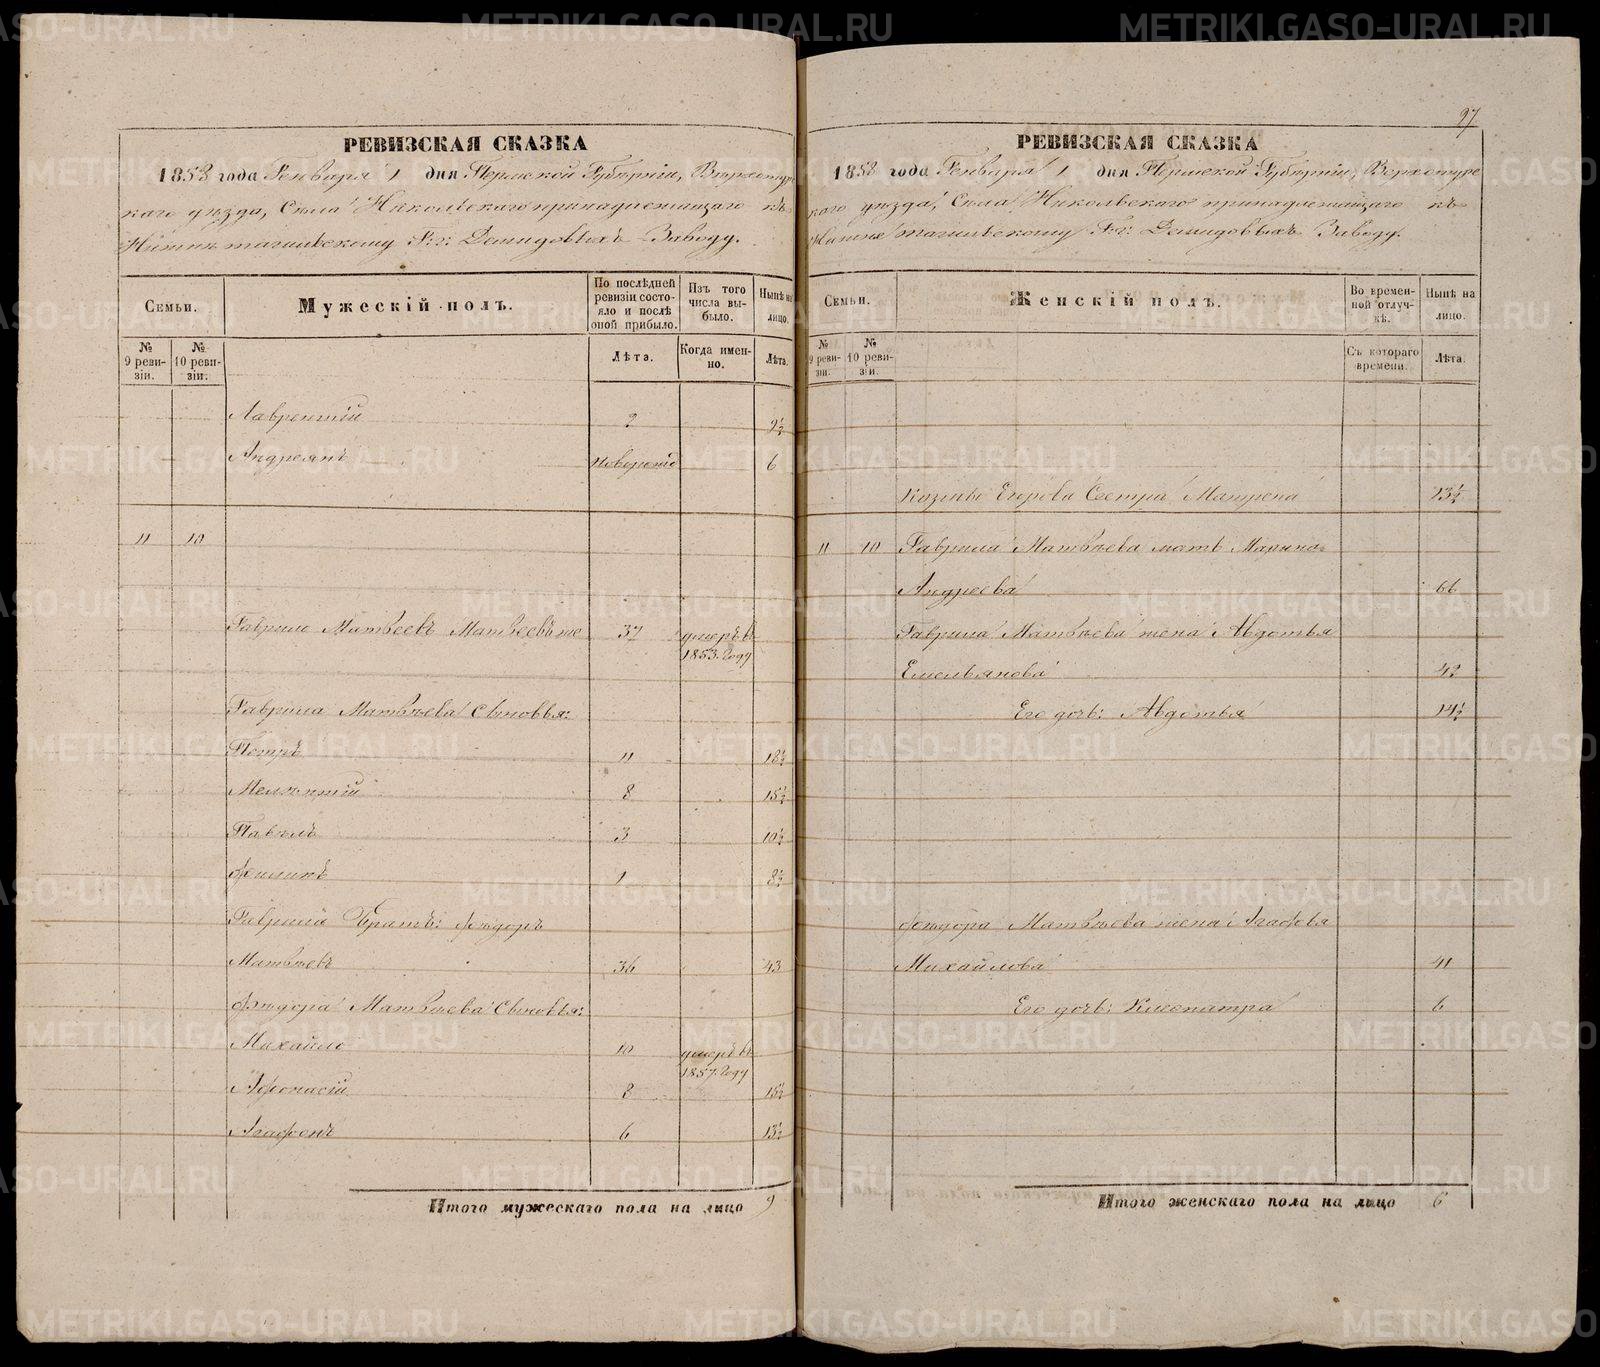 РЕВИЗСКАЯ СКАЗКА
1858 года Генваря 1 дня Пермской Губерніи, Верхотурс
каго уѣзда, Села Никольскаго принадлежащаго къ
Нижнетагильскому Г.г: Демидовыхъ Заводу.
Семьи.
№ 9 ревизіи.
№ 10 ревизіи.
Мужескій полъ.
По послѣдней ревизіи состояло и послѣ оной прибыло.
Лѣта.
Изъ того числа выбыло.
Когда именно.
Нынѣ на лицо.
Лѣта.
Лаврентій 2 9½
Андреянъ новорожд 6
11 10
Гаврило Матвеевъ Матвеевъ же 37 умеръ въ 1853 году
Гаврила Матвѣева Сыновья:
Петръ 11 18½
Мелентій 8 15½
Павелъ 3 10½
Филипъ 1 8½
Гаврила Братъ: Фѣдоръ
Матвѣевъ 36 43
Фѣдора Матвѣева Сыновья:
Михайло 10 умеръ въ 1857 году
Афонасій 8 15½
Агафонъ 6 13½
Итого мужескаго пола на лицо 9
97
РЕВИЗСКАЯ СКАЗКА
1858 года Генваря 1 дня Пермской Губерніи, Верхотурс
каго уѣзда, Села Никольскаго принадлежащаго къ
Нижнетагильскому Г.г: Демидовыхъ Заводу.
Семьи.
№ 9 ревизіи.
№ 10 ревизіи.
Женскій полъ.
Во временной отлучкѣ.
Съ котораго времени.
Нынѣ на лицо.
Лѣта.
Козмы Егорова Сестра Матрена 23½
11 10 Гаврила Матвѣева мать Марина
Андреева 66
Гаврила Матвѣева жена Авдотья
Емельянова 42
Его дочь: Авдотья 14½
Фѣдора Матвѣева жена Агафья
Михайлова 41
Его дочь: Клеопатра 6
Итого женскаго пола на лицо 6
METRIKI.GASO-URAL.RU